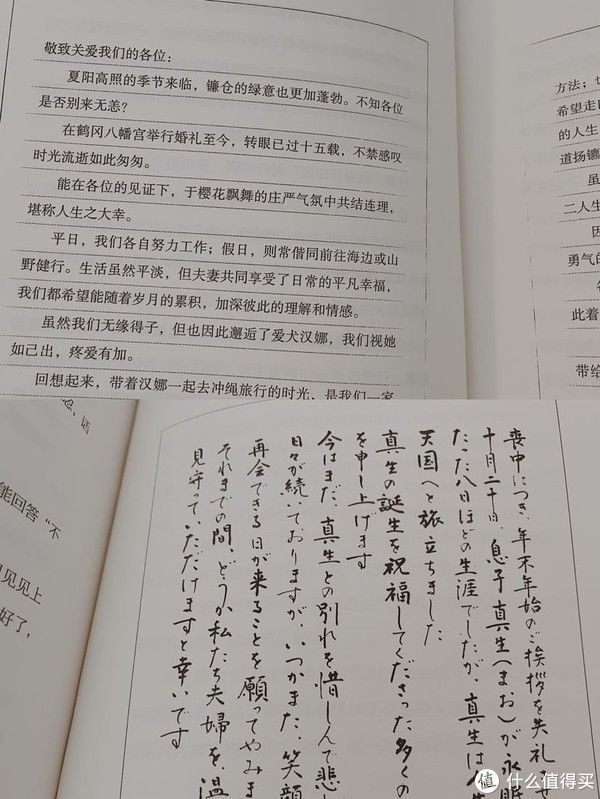 敬致关爱我们的各位:
夏阳高照的季节来临，镰仓的绿意也更加蓬勃。不知各位
是否别来无恙?
在鹤冈八幡宫举行婚礼至今，转眼已过十五载，不禁感叹
时光流逝如此匆匆。
能在各位的见证下，于樱花飘舞的庄严气氛中共结连理，
堪称人生之大幸。
平日，我们各自努力工作；假日，则常偕同前往海边或山
野健行。生活虽然平淡，但夫妻共同享受了日常的平凡幸福，
我们都希望能随着岁月的累积，加深彼此的理解和情感。
虽然我们无缘得子，但也因此邂逅了爱犬汉娜，我们视她
如己出，疼爱有加。
回想起来，带着汉娜一起去冲绳旅行的时光，是我们一家
方法；也
希望走
的人生
道扬镳
虽
二人生
因
勇气的
此着
带给
能回答“不
见见上
好了，
喪中につき、年末年始のご挨拶を失礼さ
十月二十日、息子 真生(まお)が永眠
たった八日ほどの生涯でしたが、真生は
天国へと旅立ちました
真生の誕生を祝福してくださった多くの
を申し上げます
今はまだ、真生との別れを惜しんで悲し
日々が続いておりますが、いつかまた、笑顔
再会できる日が来ることを願ってやみま
それまでの間、どうか私たち夫婦を、温
見守っていただけますと幸いです
值 什么值得买